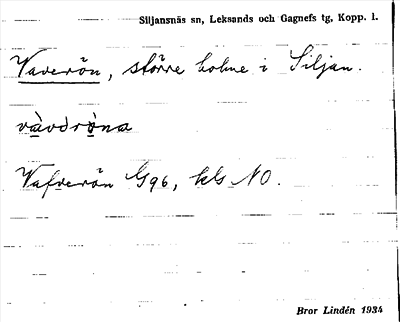 Siljansnäs sn, Leksands och Gagnefs tg, Kopp. l.
Vaverön, större holme i Siljan.
Vafverön G96, kbl NO.
Bror Lindén 1934